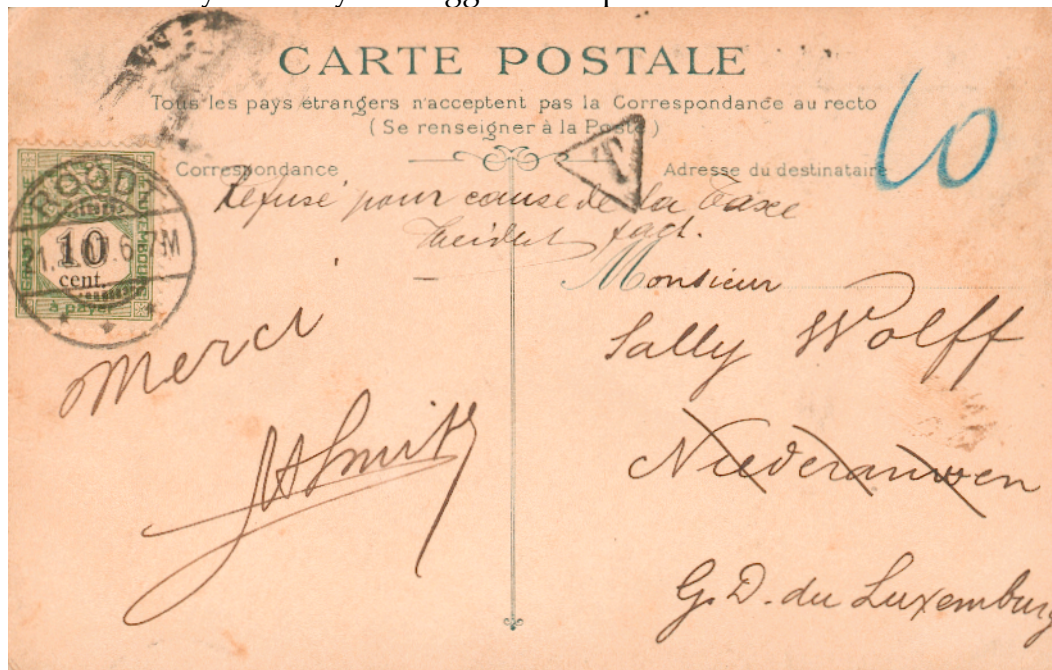 CARTE POSTALE
Tous les pays étrangers n'acceptent pas la Correspondance au recto
(Se renseigner à la Poste)
Correspondance
Adresse du destinataire
60
T
ROOD
10
cent.
à payer
Refusé pour cause de la taxe
fact.
Merci
Monsieur
Sally Wolff
Niederanwen
G. D. du Luxemburg